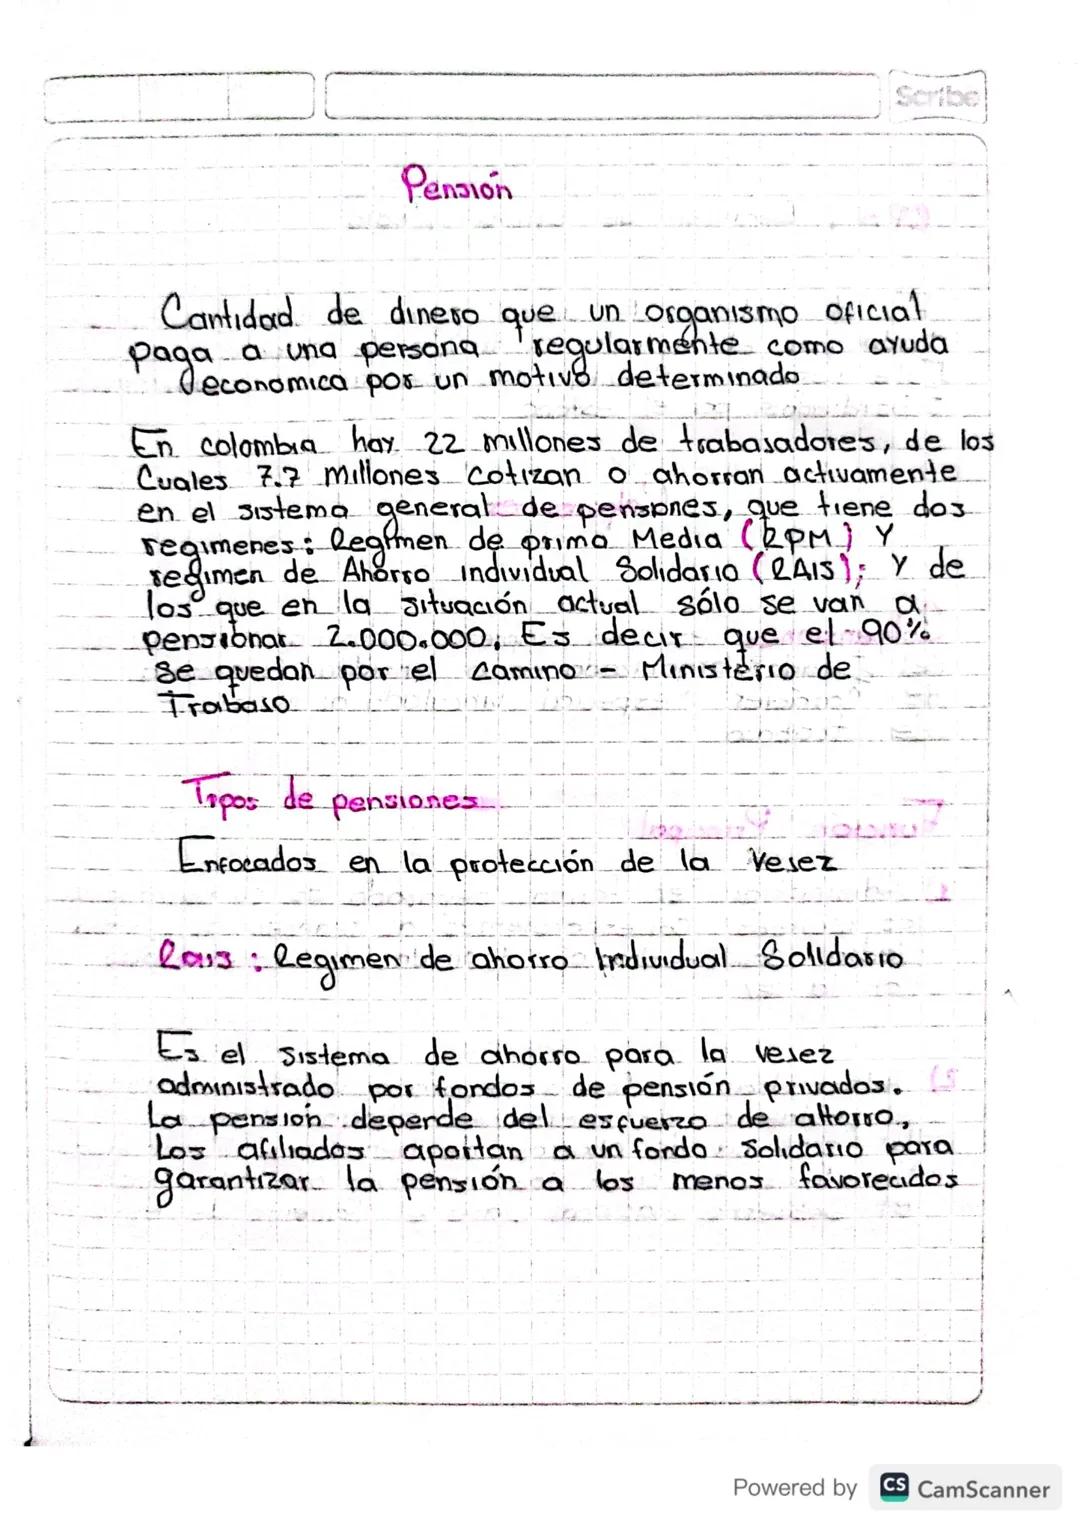 Scribe
Pensión
Cantidad de dinero que un organismo oficial
paga a una persona regularmente como ayuda
economica por un motivo determinado
En colombia hay 22 millones de trabajadores, de los
Cuales 7.7 Millones Cotizan o ahorran activamente
en el sistema general de pensiones, que tiene dos
regimenes: Regimen de prima Media (RPM) Y
regimen de Ahorro individual Solidario (RAIS); Y de
los que en la situación actual sólo se van a
pensionar 2.000.000. Es decir que el 90%
se quedan por el camino - Ministerio de
Trabajo
Tipos de pensiones
Enfocados en la protección de la Vejez
Rais: Regimen de ahorro Individual Solidario
Es el sistema de ahorro para la vejez
administrado por fondos de pensión privados.
La pensión depende del esfuerzo de ahorro.,
Los afiliados aportan a un fondo solidario para
garantizar la pensión a los menos favorecidos
Powered by CS CamScanner